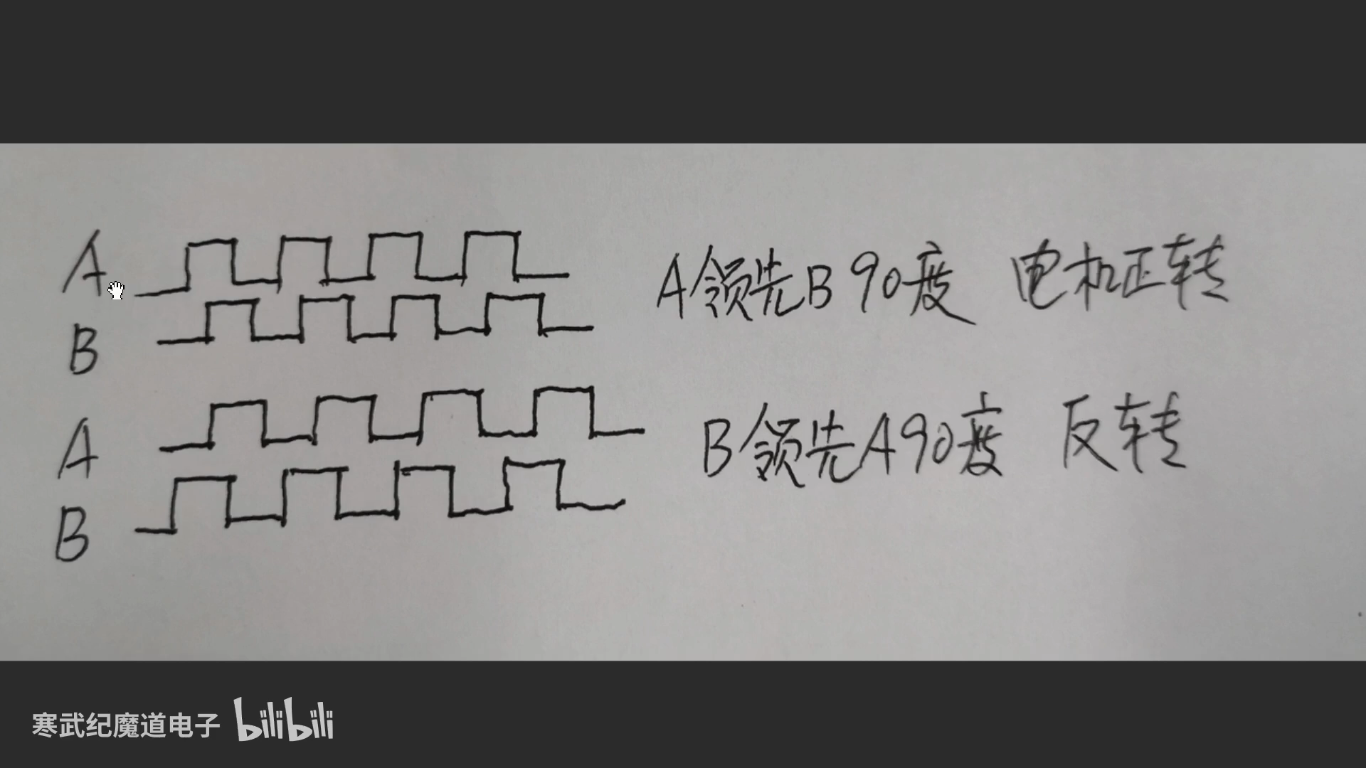 A
A领先B 90度 电机正转
B
A
B领先A 90度 反转
B
寒武纪魔道电子 bilibili